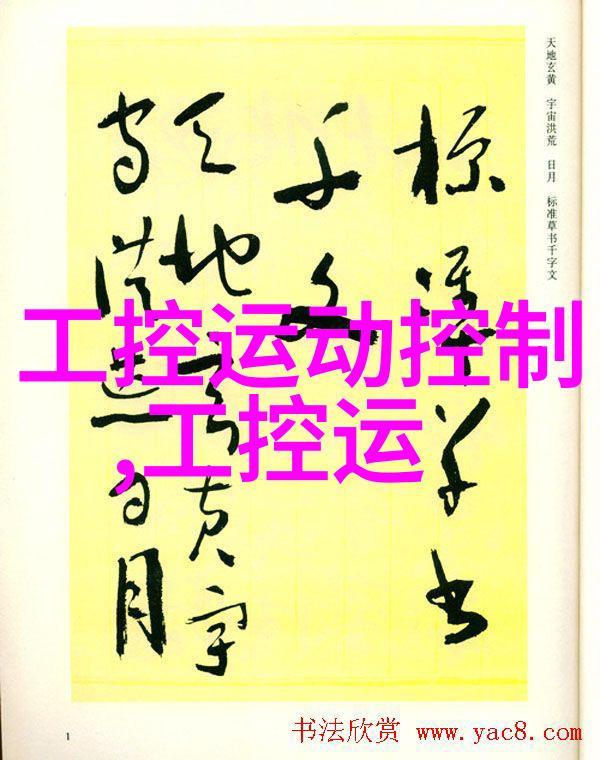 天地玄黄 宇宙洪荒 日月 标准草书千字文
标准草书
千字文
天地玄黄宇
宙洪荒日月
工控运动控制
,工控运
1
书法欣赏 www.yac8.com